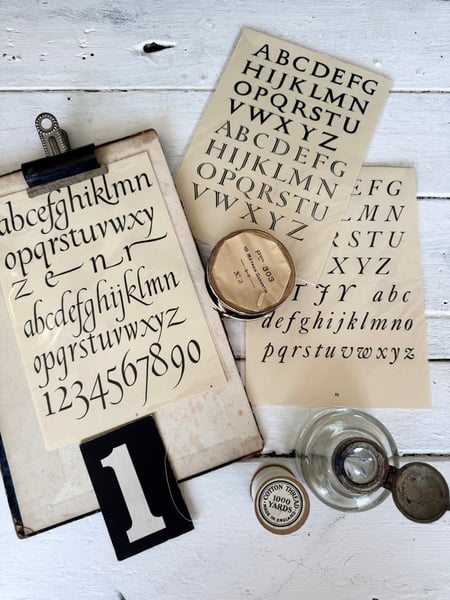 abcefghijklmn
opqrstuvwxy
z e n r
abcdefghijklmn
opqrstuvwxyz
1234567890
1
ABCDEFG
HIJKLMN
OPQRSTU
VWXYZ
ABCDEFG
HIJKLMN
OPQRSTU
VWXYZ
303
10
N° 3
EFG
LMN
RSTU
XYZ
JY abc
defghijklmno
pqrstuvwxyz
COTTON THREAD
1000
YARDS
MADE IN ENGLAND